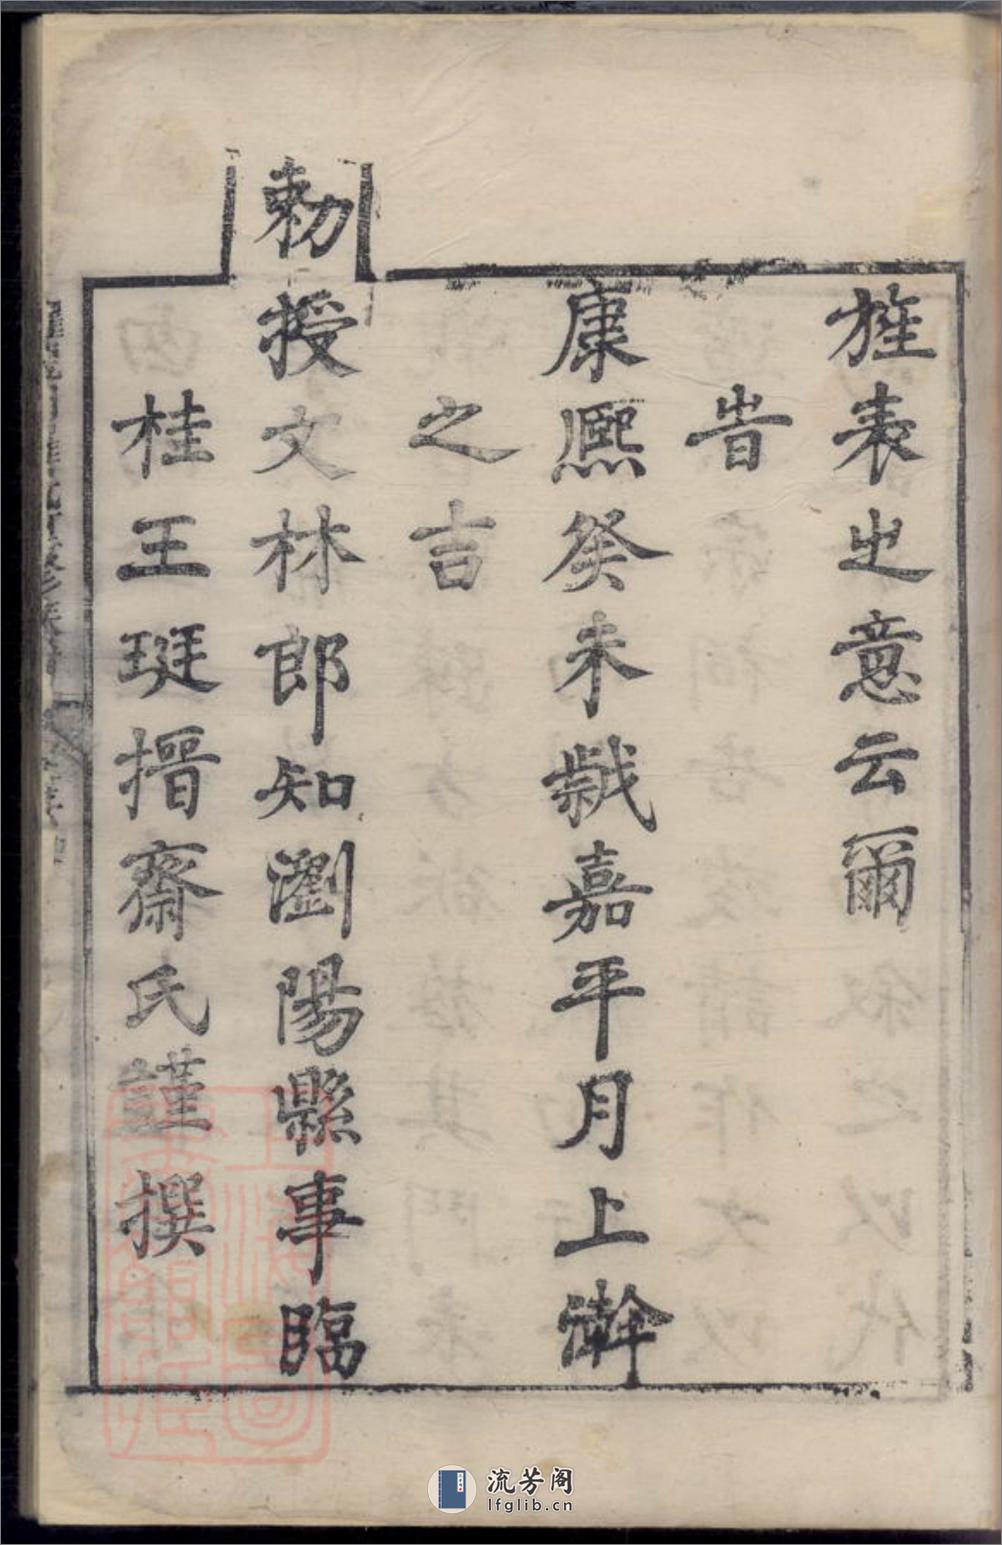 旌表之意云爾
旹
康熙癸未嵗嘉平月上澣
之吉
勅授文林郎知瀏陽縣事臨
桂王珽搢齋氏謹撰
流芳阁
lfglib.cn